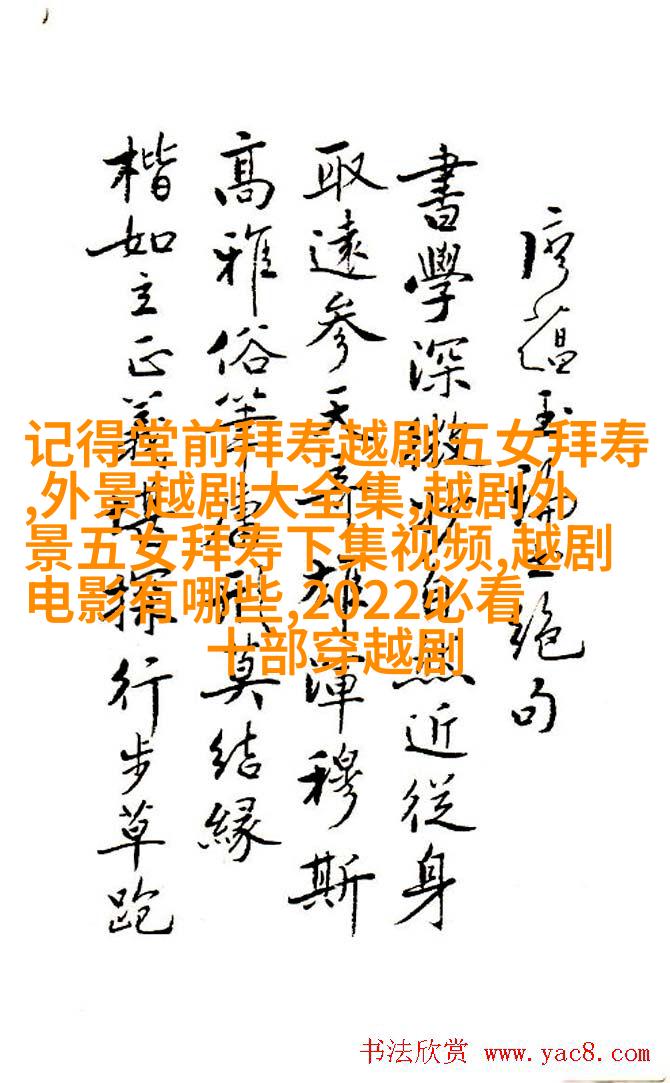 廖蘊玉絕句
書學深自然近從身
取遠參雄渾穆斯
高雅俗筆莫結緣
楷如立正探行步草跑
记得堂前拜寿越剧五女拜寿
,外景越剧大全集,越剧外
景五女拜寿下集视频,越剧
电影有哪些,2022必看
十部穿越剧
书法欣赏 www.yac8.com